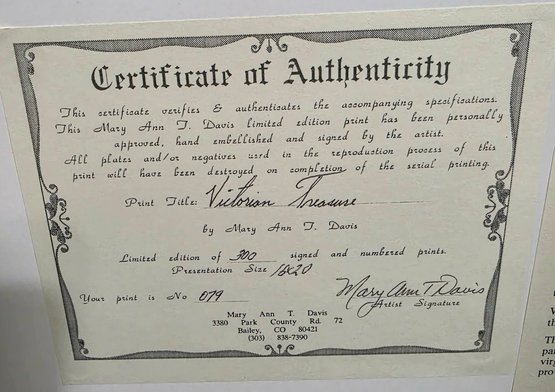 Certificate of Authenticity
This certificate verifies & authenticates the accompanying specifications.
This Mary Ann T. Davis limited edition print has been personally
approved, hand embellished and signed by the artist.
All plates and/or negatives used in the reproduction process of this
print will have been destroyed on completion of the serial printing.
Print Title: Victorian Treasure
by Mary Ann T. Davis
Limited edition of 300 signed and numbered prints.
Presentation Size 16x20
Your print is No 079
Mary Ann T Davis
Artist Signature
Mary Ann T. Davis
3380 Park County Rd. 72
Bailey, CO 80421
(303) 838-7390